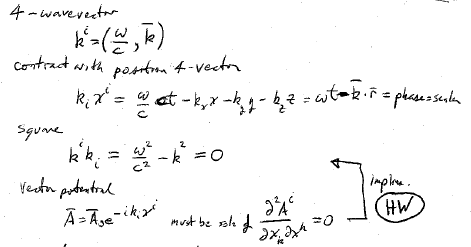 4-wavevector
k^i = (ω/c, k̄)
contract with position 4-vector
k_i x^i = ω/c ct - k_x x - k_y y - k_z z = ωt - k̄·r̄ = phase = scalar
square
k^i k_i = ω²/c² - k² = 0
vector potential
Ā = Ā₀ e^{-i k_i x^i} must be soln of ∂²A^i/∂x_k ∂x^k = 0
implies.
HW